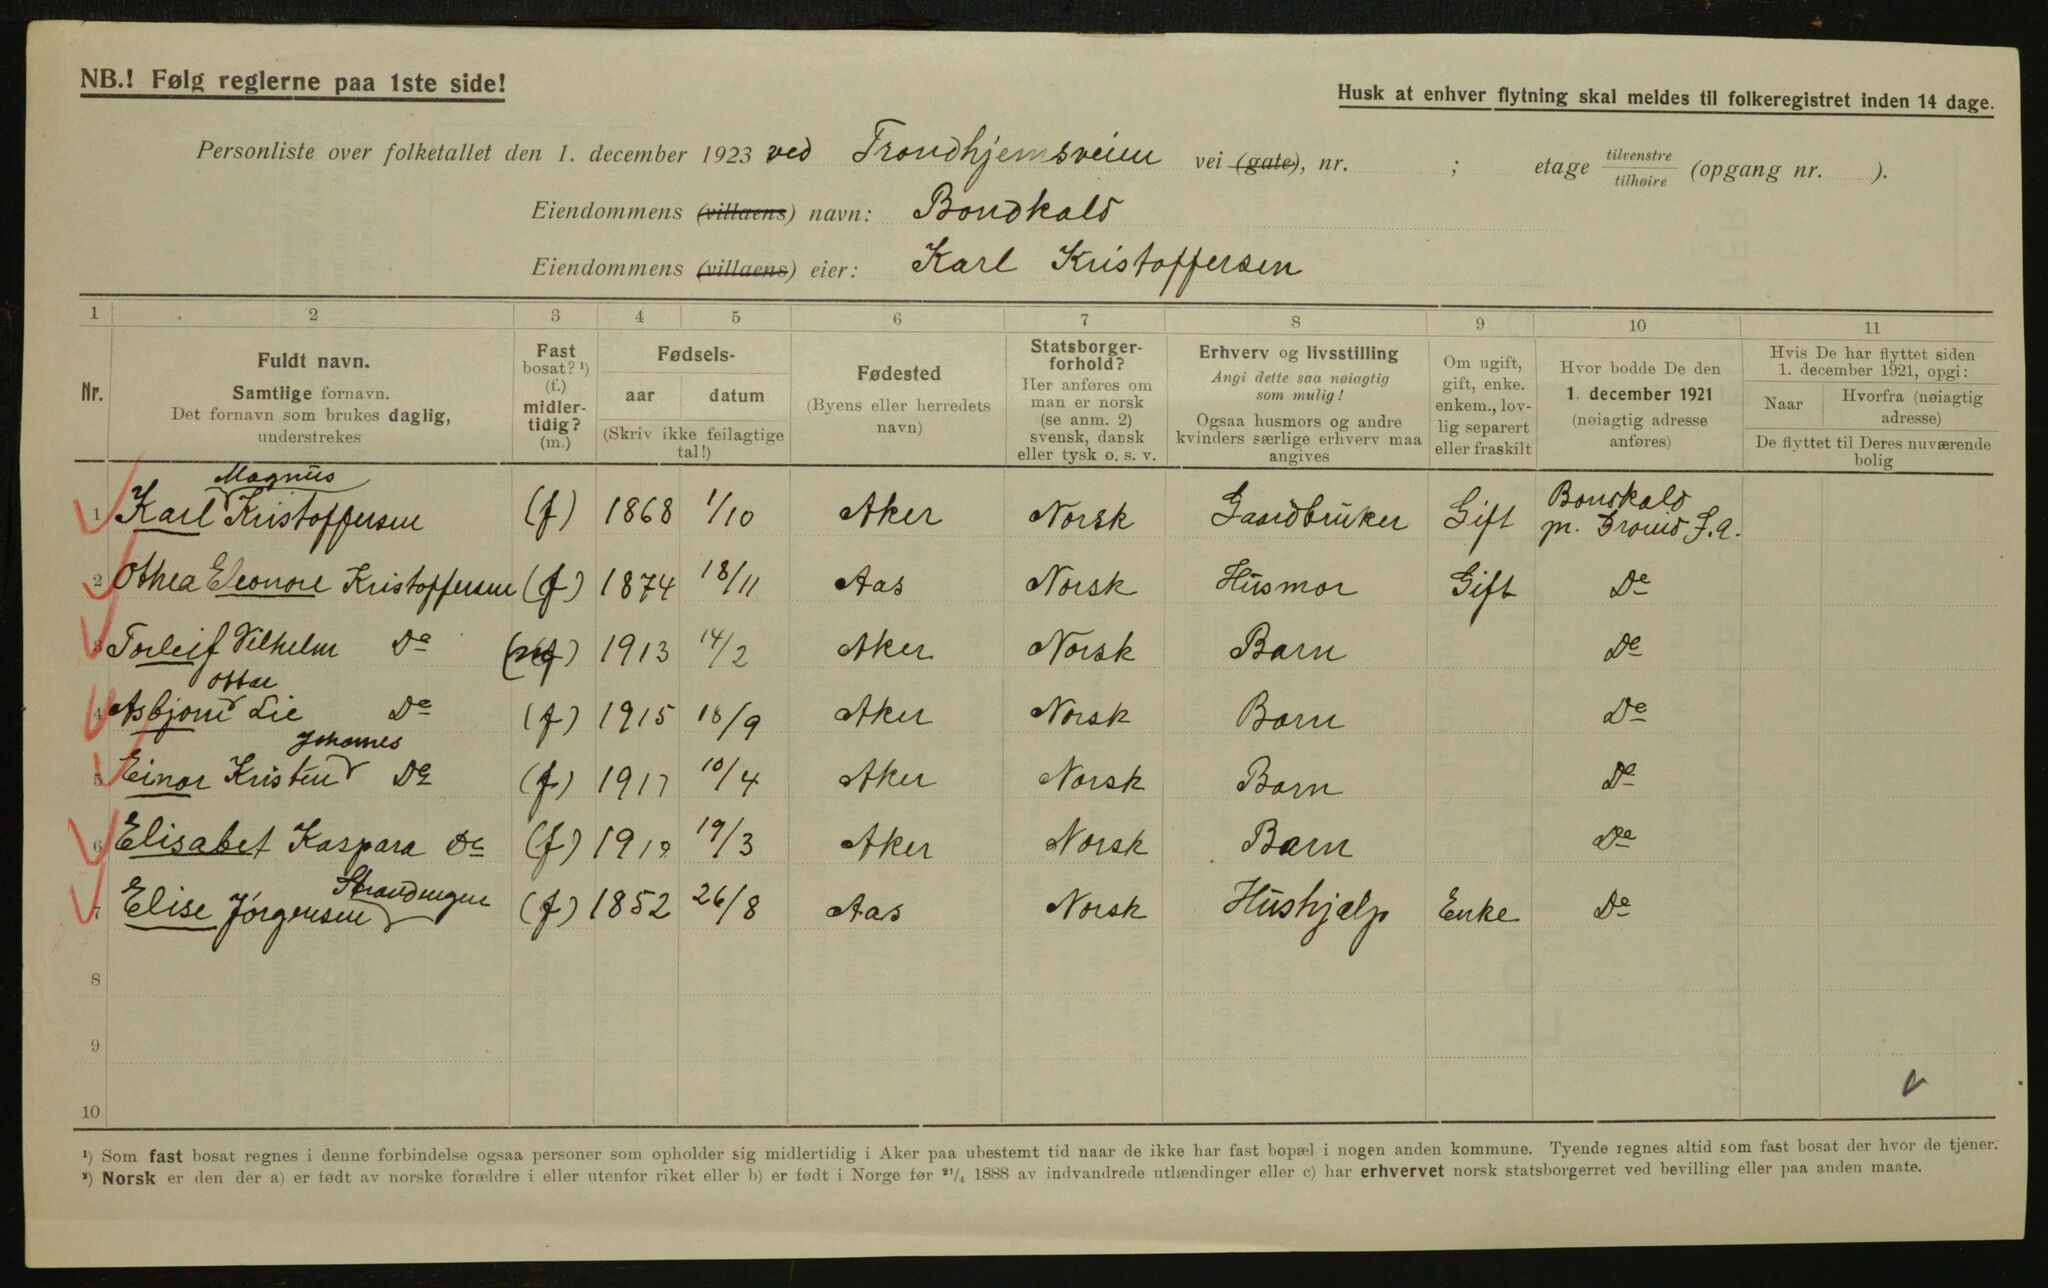 NB.! Følg reglerne paa 1ste side!
Husk at enhver flytning skal meldes til folkeregistret inden 14 dage.
Personliste over folketallet den 1. december 1923 ved Trondhjemsveien vei (gate), nr. ; etage tilvenstre tilhøire (opgang nr. ).
Eiendommens (villaens) navn: Bondkald
Eiendommens (villaens) eier: Karl Kristoffersen
1 2 3 4 5 6 7 8 9 10 11
Nr.
Fuldt navn.
Samtlige fornavn.
Det fornavn som brukes daglig,
understrekes
Fast
bosat? ¹)
(f.)
midler-
tidig?
(m.)
Fødsels-
aar datum
(Skriv ikke feilagtige
tal!)
Fødested
(Byens eller herredets
navn)
Statsborger-
forhold?
Her anføres om
man er norsk
(se anm. 2)
svensk, dansk
eller tysk o. s. v.
Erhverv og livsstilling
Angi dette saa nøiagtig
som mulig!
Ogsaa husmors og andre
kvinders særlige erhverv maa
angives
Om ugift,
gift, enke.
enkem., lov-
lig separert
eller fraskilt
Hvor bodde De den
1. december 1921
(nøiagtig adresse
anføres)
Hvis De har flyttet siden
1. december 1921, opgi:
Naar
Hvorfra (nøiagtig
adresse)
De flyttet til Deres nuværende
bolig
Magnus
1 Karl Kristoffersen (f) 1868 1/10 Aker Norsk Gaardbruker Gift Bonskald
p. Grorud S.a.
2 Othea Eleonore Kristoffersen (f) 1874 18/11 Aas Norsk Husmor Gift De
3 Torleif Vilhelm De (f) 1913 14/2 Aker Norsk Barn De
Ottar
4 Asbjørn Lie De (f) 1915 18/9 Aker Norsk Barn De
Johannes
5 Einar Kristen De (f) 1917 10/4 Aker Norsk Barn De
6 Elisabet Kaspara De (f) 1919 19/3 Aker Norsk Barn De
7 Elise Jørgensen (f) 1852 26/8 Aas Norsk Hushjælp Enke De
8
9
10
¹) Som fast bosat regnes i denne forbindelse ogsaa personer som opholder sig midlertidig i Aker paa ubestemt tid naar de ikke har fast bopæl i nogen anden kommune. Tyende regnes altid som fast bosat der hvor de tjener.
²) Norsk er den der a) er født av norske forældre i eller utenfor riket eller b) er født i Norge før ²¹/₄ 1888 av indvandrede utlændinger eller c) har erhvervet norsk statsborgerret ved bevilling eller paa anden maate.